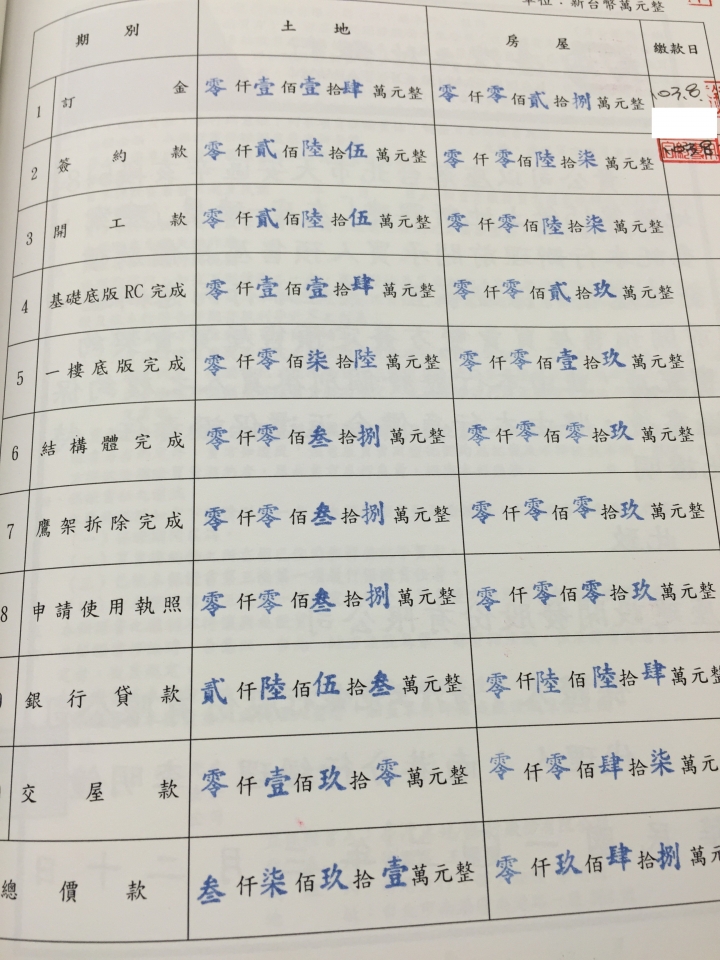 單位：新台幣萬元整
期別 土地 房屋 繳款日
1 訂金 零仟壹佰壹拾肆萬元整 零仟零佰貳拾捌萬元整 103.8.
2 簽約款 零仟貳佰陸拾伍萬元整 零仟零佰陸拾柒萬元整
3 開工款 零仟貳佰陸拾伍萬元整 零仟零佰陸拾柒萬元整
4 基礎底版RC完成 零仟壹佰壹拾肆萬元整 零仟零佰貳拾玖萬元整
5 一樓底版完成 零仟零佰柒拾陸萬元整 零仟零佰壹拾玖萬元整
6 結構體完成 零仟零佰叁拾捌萬元整 零仟零佰零拾玖萬元整
7 鷹架拆除完成 零仟零佰叁拾捌萬元整 零仟零佰零拾玖萬元整
8 申請使用執照 零仟零佰叁拾捌萬元整 零仟零佰零拾玖萬元整
銀行貸款 貳仟陸佰伍拾叁萬元整 零仟陸佰陸拾肆萬元整
交屋款 零仟壹佰玖拾零萬元整 零仟零佰肆拾柒萬元
總價款 叁仟柒佰玖拾壹萬元整 零仟玖佰肆拾捌萬元